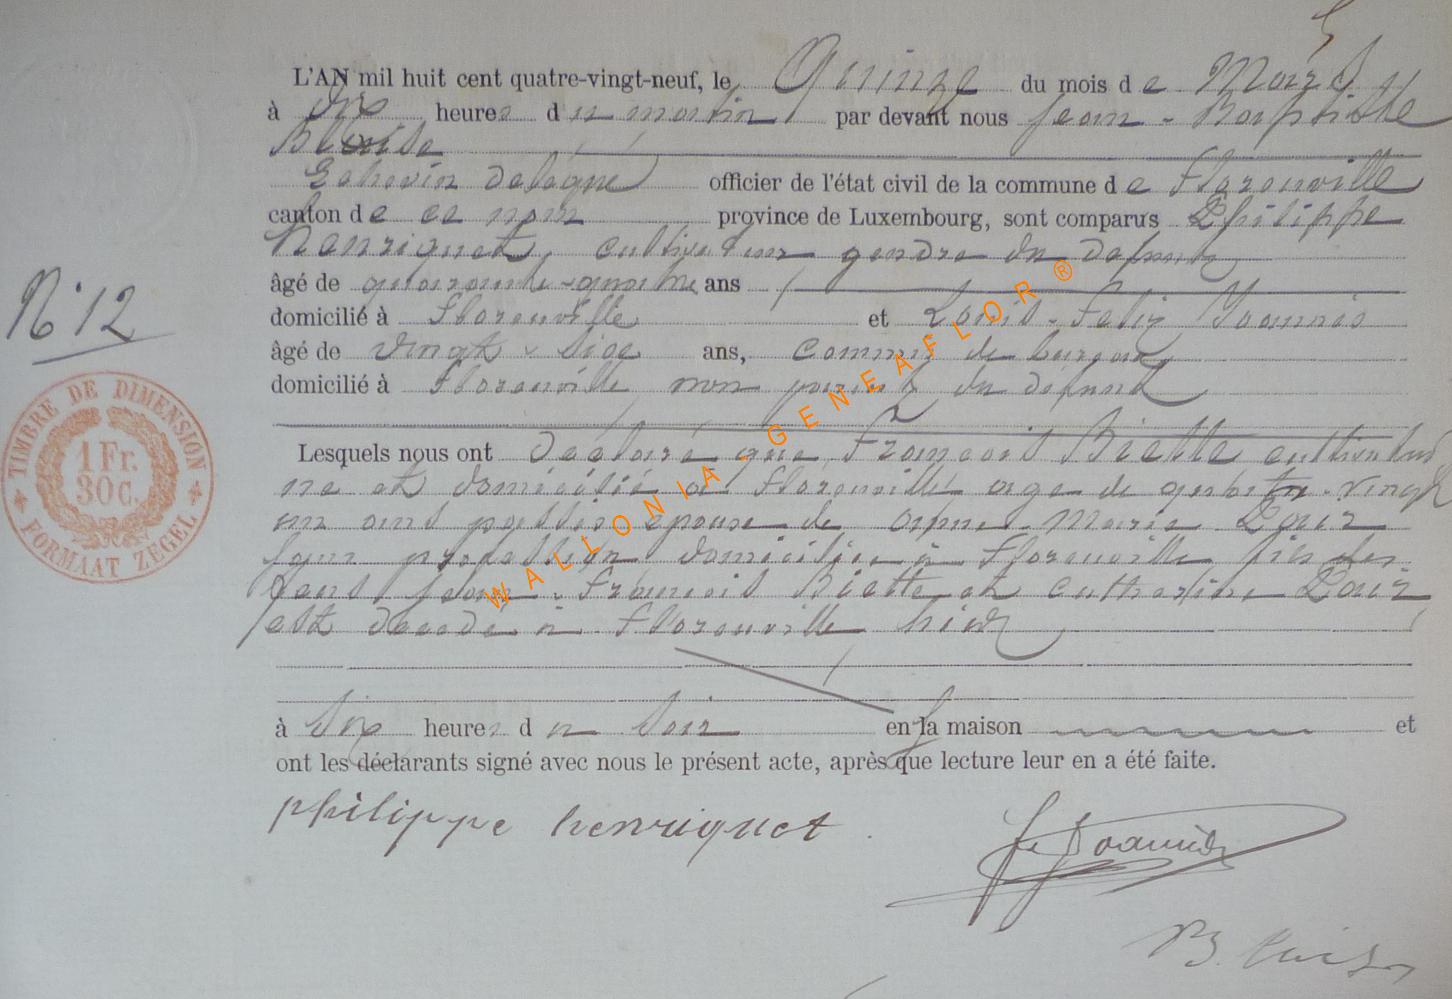 L'AN mil huit cent quatre-vingt-neuf, le Quinze du mois de Mars
à dix heures du matin par devant nous Jean-Baptiste
Blaise
Echevin délégué officier de l'état civil de la commune de Florenville
canton de ce nom province de Luxembourg, sont comparus Philippe
Henriquet, cultivateur gendre du défunt
âgé de quarante-quatre ans
domicilié à Florenville et Louis-Felix Joannès
âgé de vingt-six ans, commis de bureau
domicilié à Florenville non parent du défunt
N° 12
TIMBRE DE DIMENSION
1 Fr.
30 C.
FORMAAT ZEGEL
Lesquels nous ont déclaré que François Biette cultivateur
né et domicilié à Florenville agé de quatre-vingt
un ans passés époux de Anne-Marie
sans profession domiciliée à Florenville fils des
Jean-François Biette et Catherine
est décédé à Florenville hier
à six heures du soir en sa maison et
ont les déclarants signé avec nous le présent acte, après que lecture leur en a été faite.
philippe henriquet
F. Joannès
WALLONIA - GENEAFLOR ®